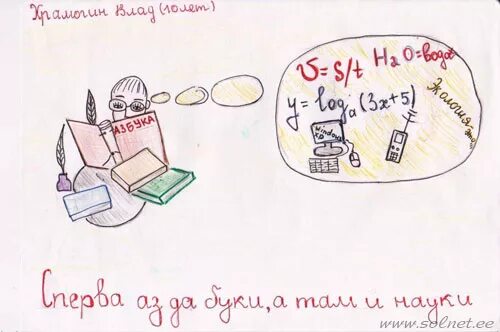 Храмогин Влад (10 лет)
АЗБУКА
V=S/t H2O=вода
y=logₐ(3x+5)
Экология
Window
Сперва аз да буки, а там и науки
www.solnet.ee